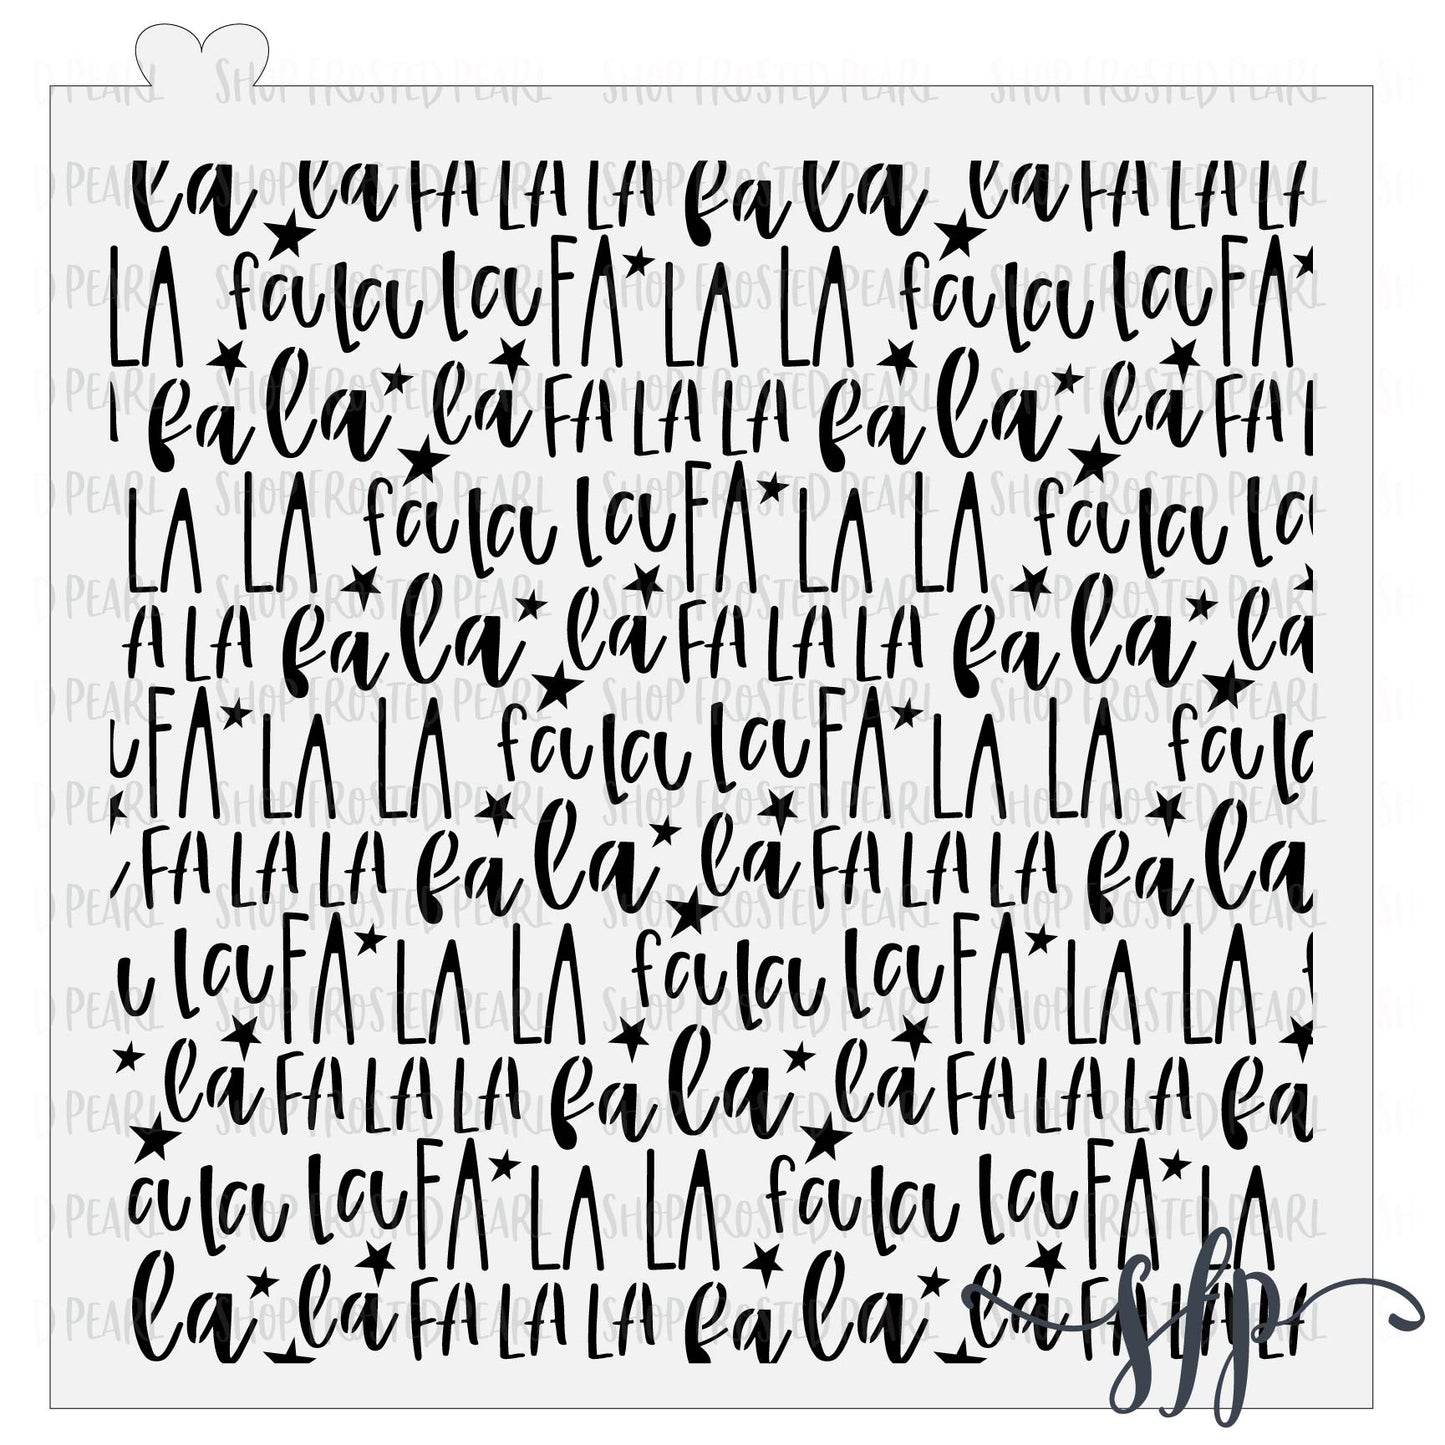 la la FA LA LA fa la la FA LA LA
LA fa la la FA LA LA fa la la FA
fa la la FA LA LA fa la la FA
LA LA fa la la FA LA LA fa la la
A LA fa la la FA LA LA fa la la
FA LA LA fa la la FA LA LA fa la
FA LA LA fa la la FA LA LA fa la
a la FA LA LA fa la la FA LA LA
la FA LA LA fa la la FA LA LA fa
a la la FA LA LA fa la la FA LA
la la FA LA LA fa la la FA LA LA
sfp
SHOP FROSTED PEARL